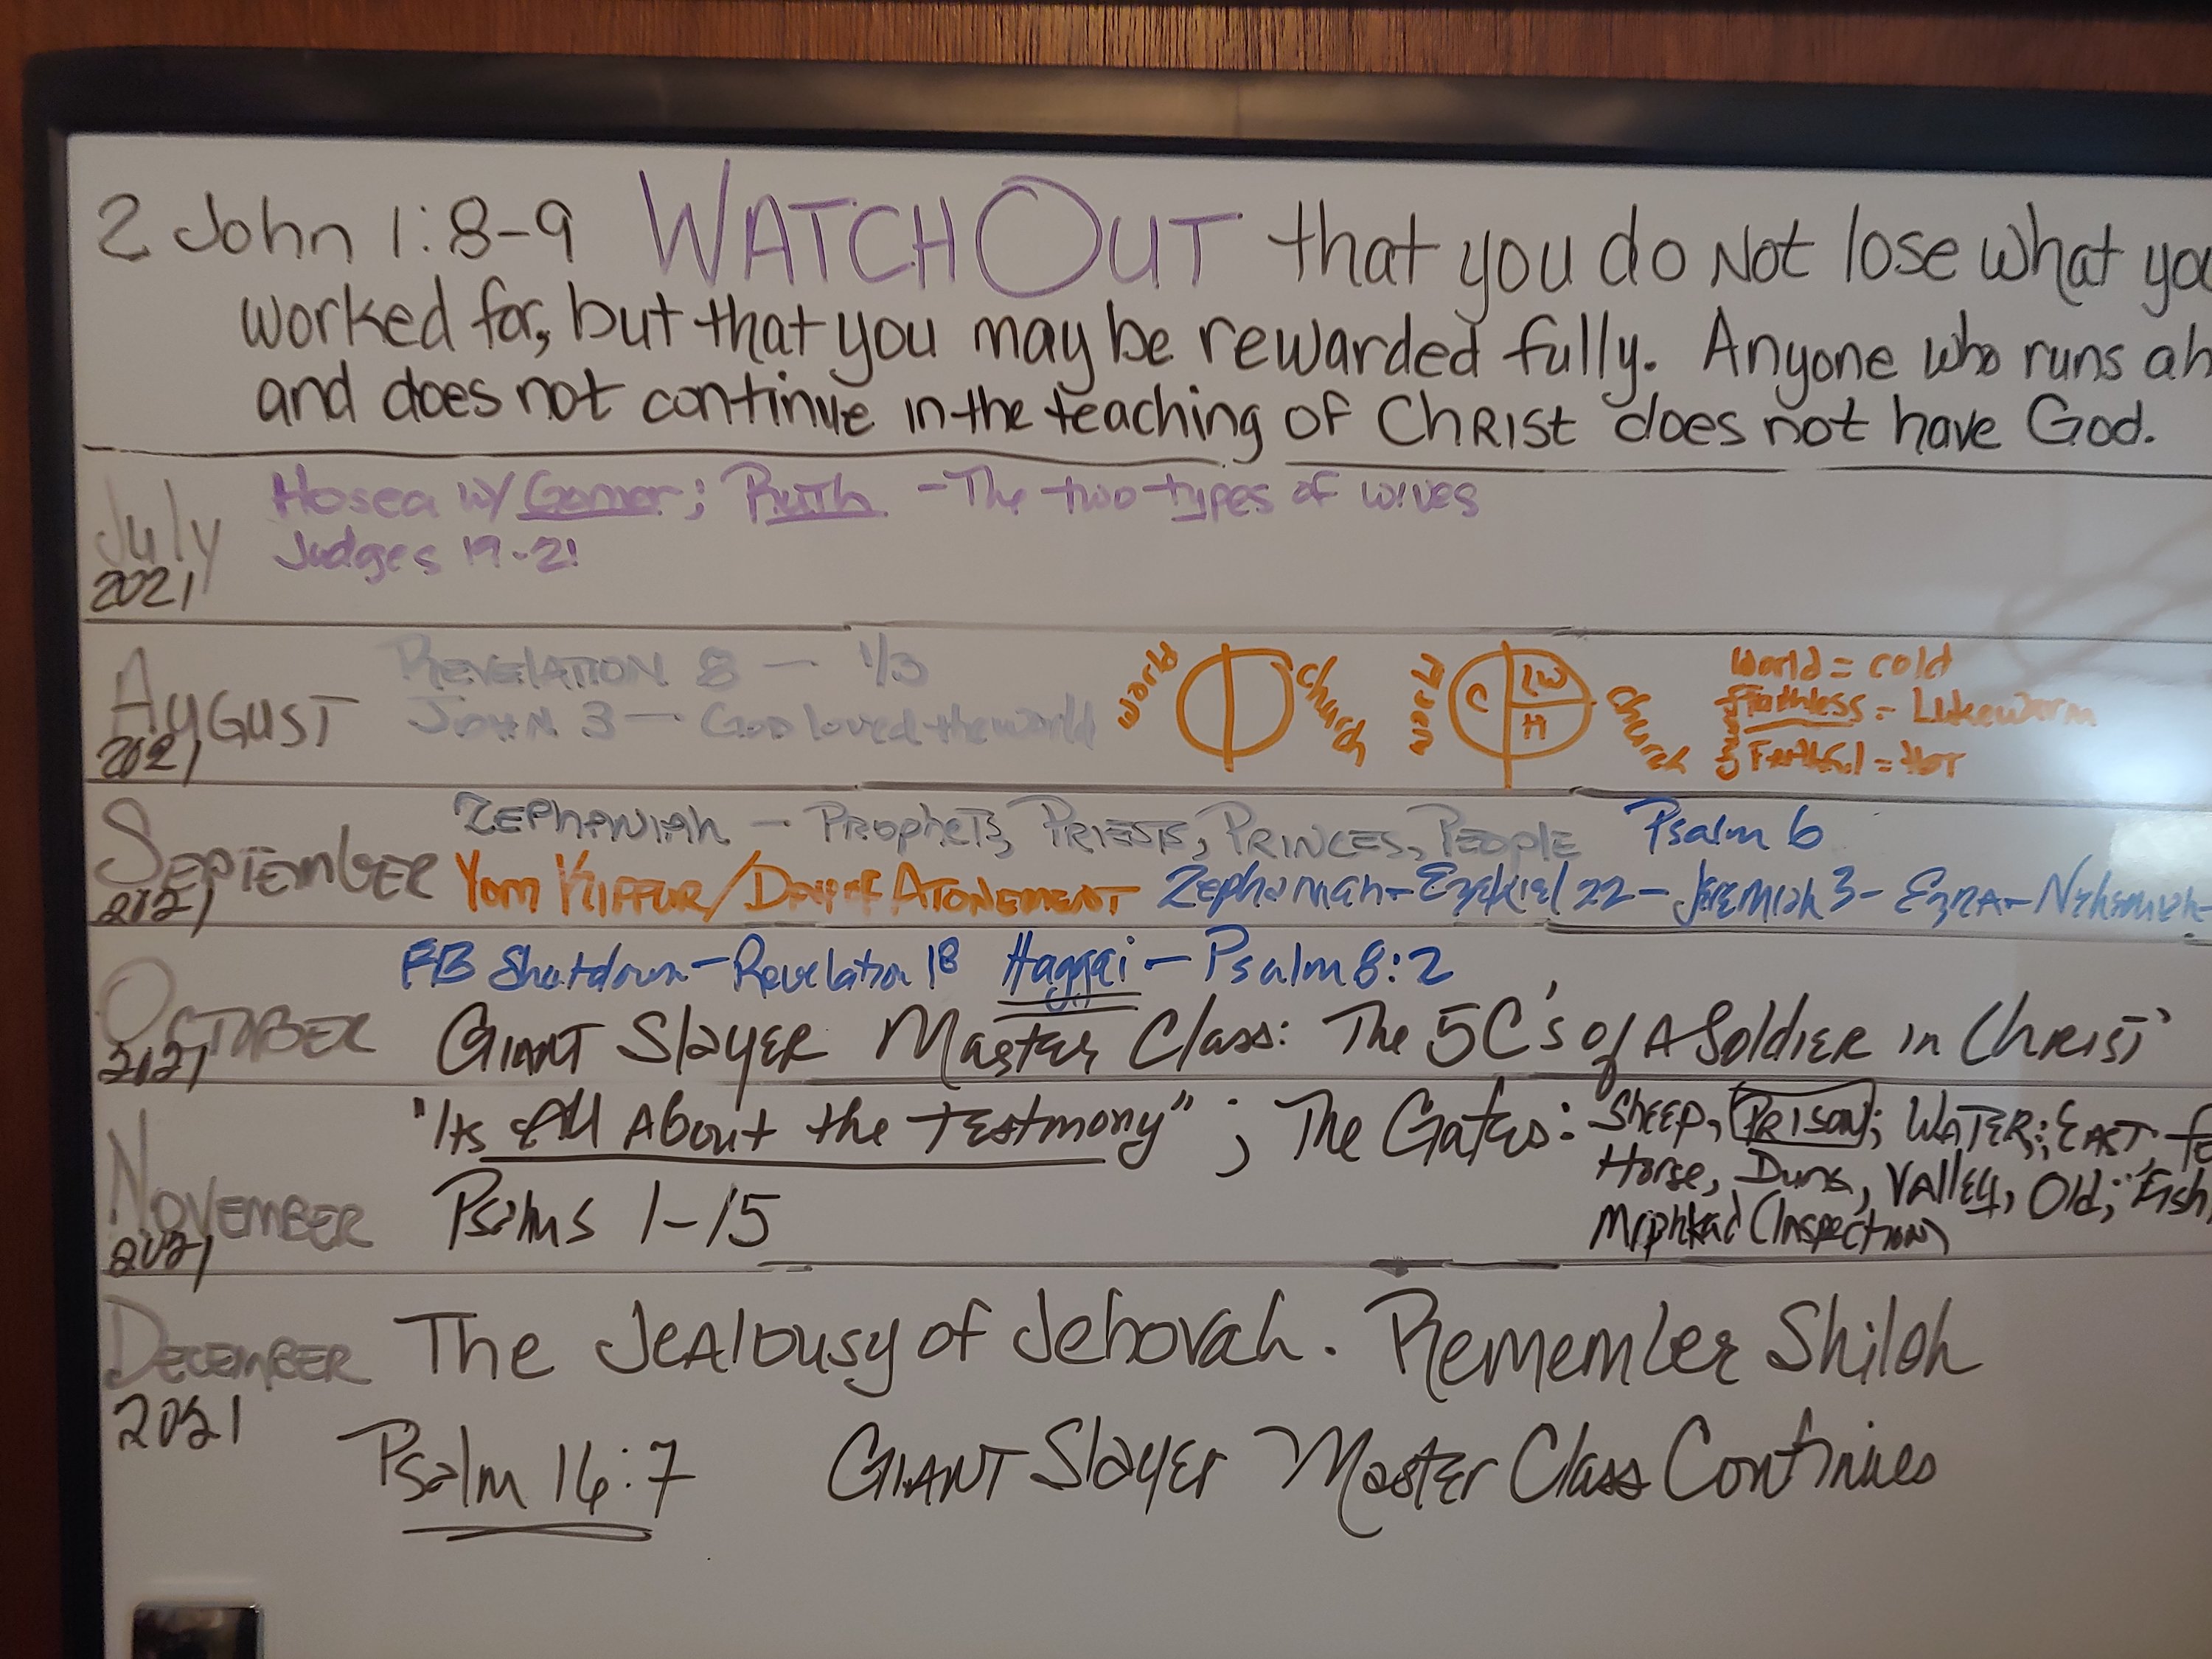 2 John 1:8-9 WATCH OUT that you do Not lose what you
worked for, but that you may be rewarded fully. Anyone who runs ah
and does not continue in the teaching of CHRIST does not have God.
July
2021
Hosea w/ Gomer; Ruth - The two types of wives
Judges 19-21
AUGUST
2021
REVELATION 8 — 1/3
JOHN 3 — GOD loved the world
World
Church
World
C
LW
H
Church
World = cold
Faithless = Lukewarm
Faithful = HOT
SEPTEMBER
2021
ZEPHANIAH — PROPHETS, PRIESTS, PRINCES, PEOPLE Psalm 6
YOM KIPPUR/DAY OF ATONEMENT Zephaniah - Ezekiel 22 - Jeremiah 3 - EZRA - Nehemiah -
OCTOBER
2021
FB Shutdown - Revelation 18 Haggai - Psalm 8:2
GIANT SlAYER Master Class: The 5C's of A Soldier in CHRIST
NOVEMBER
2021
"Its All About the Testmony" ; The Gates: SHEEP, PRISON; WATER; EAST,
Horse, Dung, Valley, Old; Fish,
Miphkad (Inspection)
Psalms 1-15
DECEMBER
2021
The Jealousy of Jehovah. Remember Shiloh
Psalm 16:7 GIANT Slayer Master Class Continues